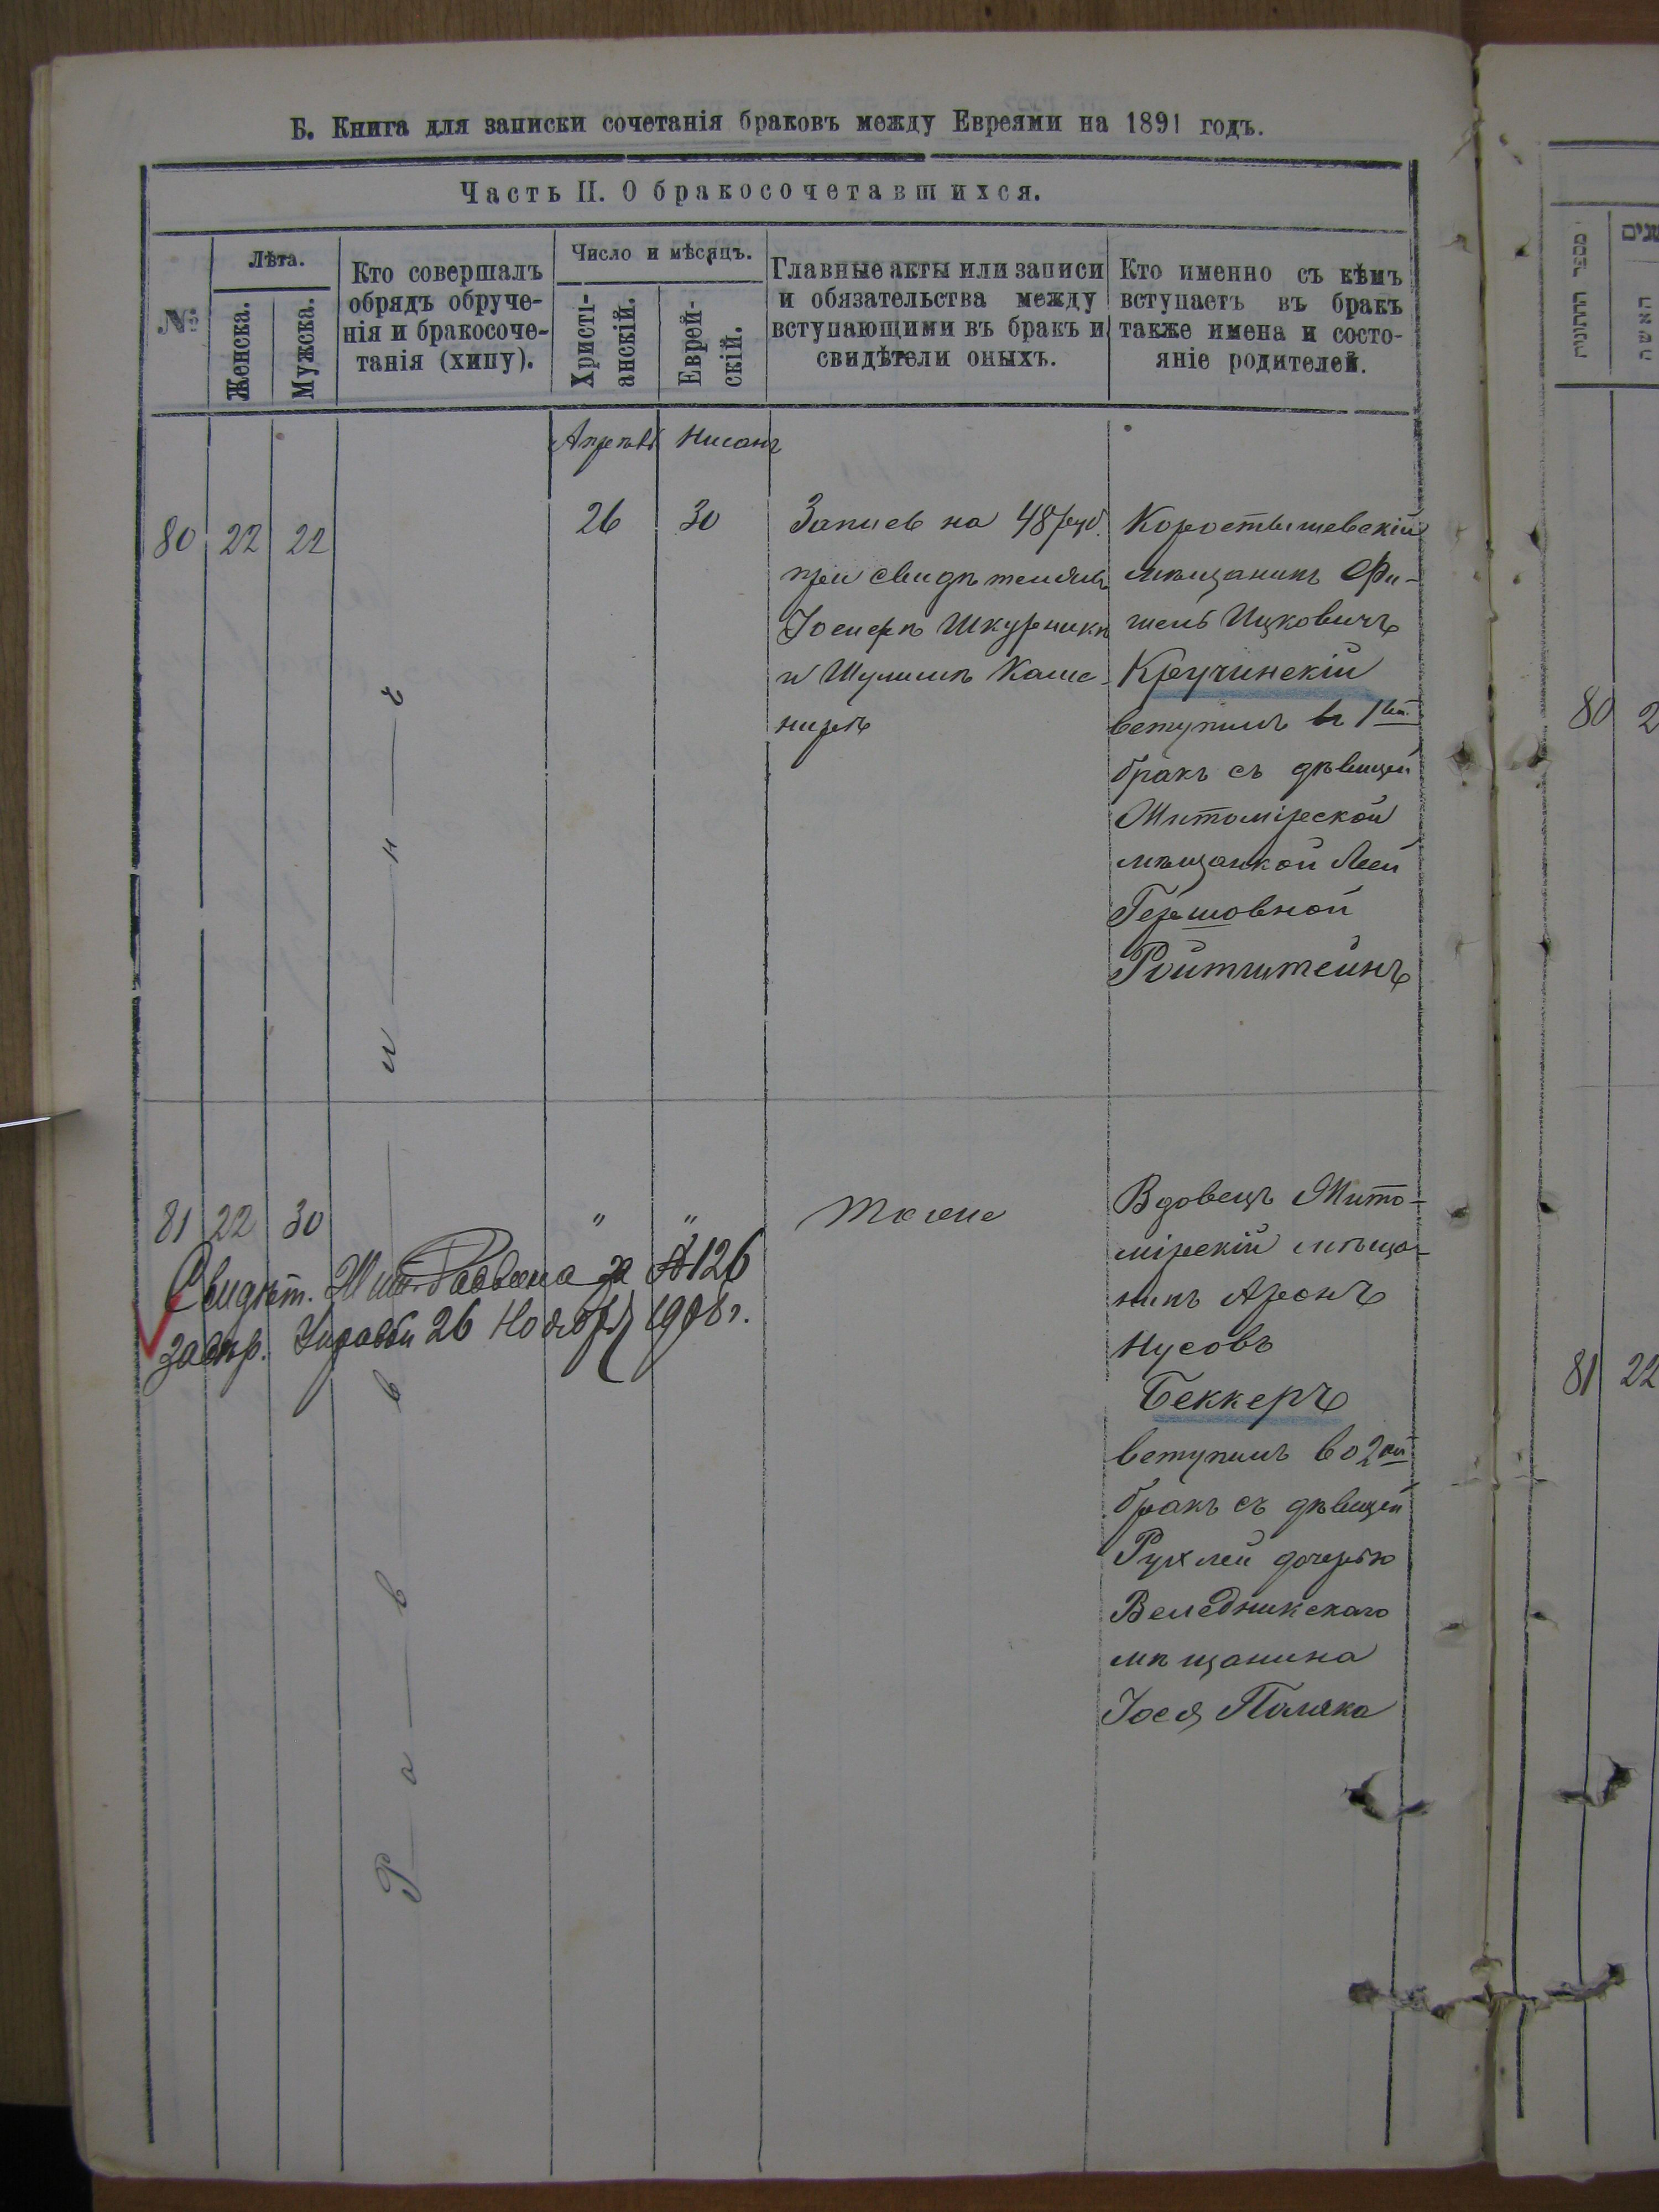 Б. Книга для записки сочетанія браковъ между Евреями на 1891 годъ.
Часть II. О бракосочетавшихся.
№
Лѣта.
Женска.
Мужска.
Кто совершалъ
обрядъ обруче-
нія и бракосоче-
танія (хипу).
Число и мѣсяцъ.
Христі-
анскій.
Еврей-
скій.
Главные акты или записи
и обязательства между
вступающими въ бракъ и
свидѣтели оныхъ.
Кто именно съ кѣмъ
вступаетъ въ бракъ
также имена и состо-
яніе родителей.
Апрель Нисанъ
80 22 22
26 30
Запись на 48 руб.
при свидѣтеляхъ
Іосифѣ Шкурникѣ
и Шулимѣ Каше-
нирѣ
Коростышевскій
мѣщанинъ Фи-
шель Ицковичъ
Кручинскій
вступилъ въ 1ый
бракъ съ дѣвицей
Житомірской
мѣщанкой Леей
Гершовной
Ройтштейнъ
Раввинъ
81 22 30
" "
Тоже
Вдовецъ Жито-
мірскій мѣща-
нинъ Аронъ
Нусовъ
Беккеръ
вступилъ во 2ой
бракъ съ дѣвицей
Рухлей дочерью
Веледникскаго
мѣщанина
Іося Поляка
Свидѣт. Жит. Раввина за №126
Управы 26 Ноября 1908 г.
מספר החתונות
שנים
האשה
80 2
81 22